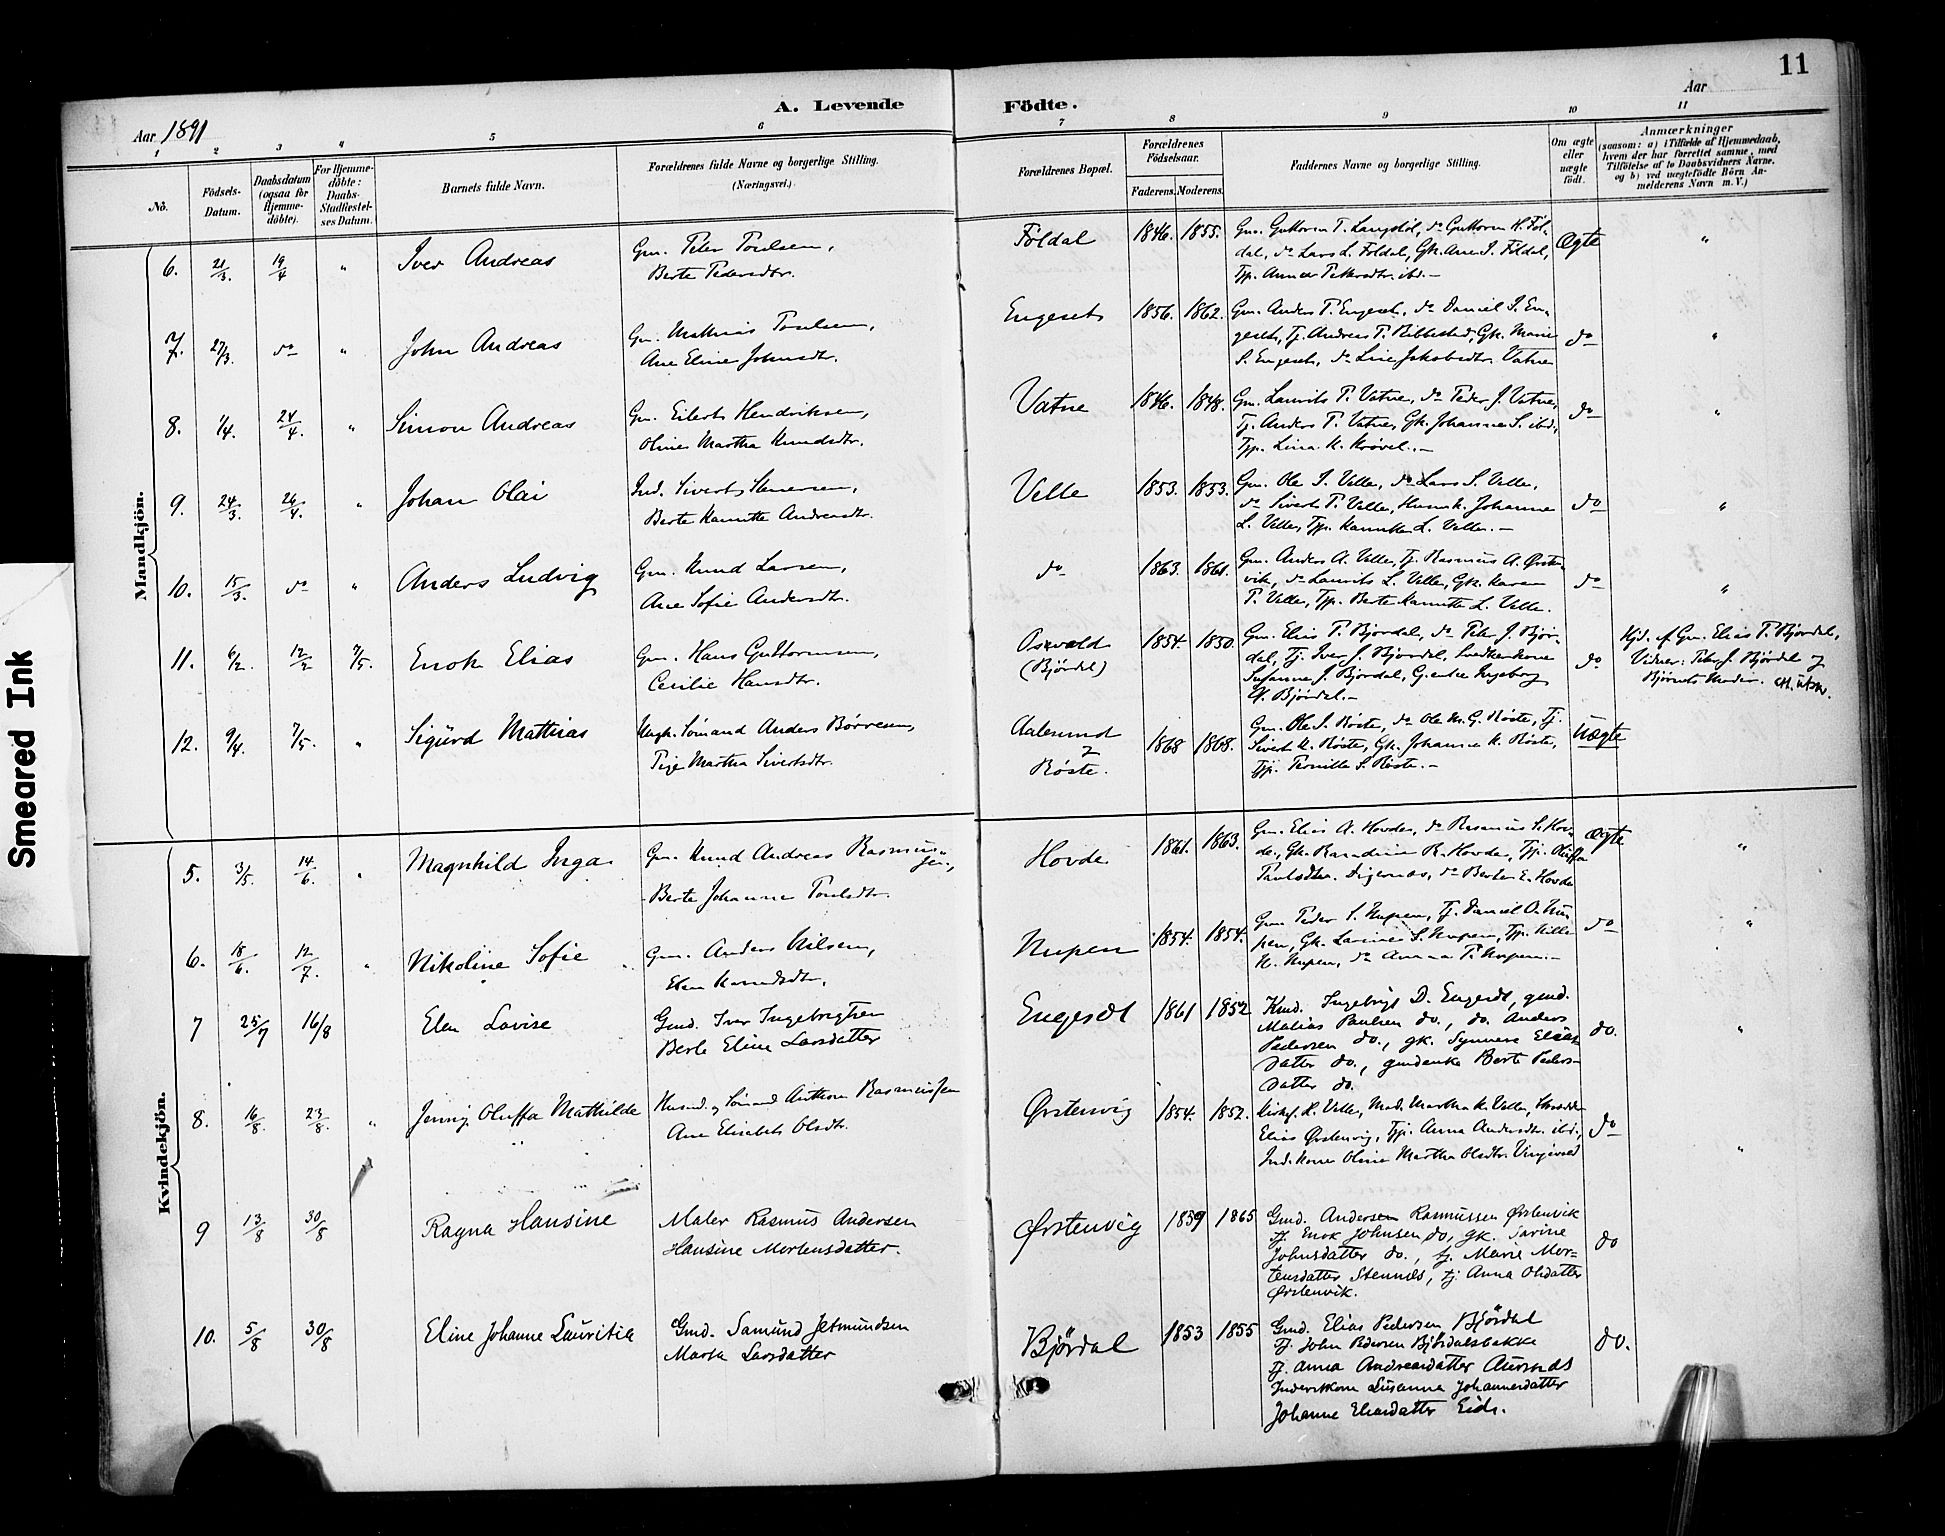 11
A. Levende Födte.
Aar 1891
Aar
1 2 3 4 5 6 7 8 9 10 11
No.
Födsels-Datum.
Daabsdatum (ogsaa for Hjemmedöbte).
For Hjemmedöbte: Daabs-Stadfæstelses Datum.
Barnets fulde Navn.
Forældrenes fulde Navne og borgerlige Stilling. (Næringsvei.)
Forældrenes Bopæl.
Forældrenes Födselsaar.
Faderens. Moderens.
Faddernes Navne og borgerlige Stilling.
Om ægte eller uægte födt.
Anmærkninger (saasom: a) i Tilfælde af Hjemmedaab, hvem der har forrettet samme, med Tilföielse af to Daabsvidners Navne. og b) ved uægtefödte Börn Anmelderens Navn m. V.)
Mandkjön.
6. 21/3. 19/4 " Iver Andreas
Gm. Peter Poulsen,
Berte Pedersdtr.
Foldal 1846. 1855.
Gm. Guttorm T. Langstøl, do Guttorm H. Fol-
dal, do Lars L. Foldal, Gk. Ane I. Foldal,
Tjp. Anna Pettersdtr. ibd.—
Ægte "
7. 27/3. do " John Andreas
Gm. Mathias Poulsen,
Ane Eline Johnsdtr.
Engeset 1856. 1862.
Gm. Anders P. Engeset, do Daniel I. En-
geset, Tj. Andreas P. Ribbestad, Gk. Marie
S. Engeset, do Line Jakobsdtr. Vatne
do "
8. 1/4. 24/4. " Simon Andreas
Gm. Eilert Hendriksen,
Oline Martha Knudsdtr.
Vatne 1846. 1848.
Gm. Laurits P. Vatne, do Peder J. Vatne,
Tj. Anders P. Vatne, Gk. Johanne S. ibd.,
Tjp. Lina K. Krøvel.—
do "
9. 24/3. 26/4. " Johan Olai
Ind. Sivert Stenersen,
Berte Kanutte Andreasdtr.
Velle 1853. 1853.
Gm. Ole I. Velle, do Lars S. Velle,
do Sivert P. Velle, Husmk. Johanne
L. Velle, Tjp. Kanutte L. Velle.—
do "
10. 15/3. do " Anders Ludvig
Gm. Knud Larsen,
Ane Sofie Andersdtr.
do 1863. 1861.
Gm. Anders A. Velle, Tj. Rasmus A. Ørsten-
vik, do Laurits L. Velle, Gk. Karen
P. Velle, Tjp. Berte Kanutte L. Velle.
do "
11. 6/2. 12/2 7/5. Enok Elias
Gm. Hans Guttormsen,
Cecilie Hansdtr.
Osvold
(Bjørdal) 1854. 1850.
Gm. Elias P. Bjørdal, do Peter J. Bjør-
dal, Tj. Iver J. Bjørdal, Snedkerkone
Susanne J. Bjørdal, G.enke Ingeborg
H. Bjørdal.—
do
Hjd. af Gm. Elias P. Bjørdal,
Vidner: Peter J. Bjørdal og
Barnets Moder.
12. 9/4. 7/5. " Sigurd Mathias
Ungk. Sømand Anders Børresen,
Pige Martha Sivertsdtr.
Aalesund
&
Røste. 1868 1868.
Gm. Ole S. Røste, do Ole M. G. Røste, Tj.
Sivert K. Røste, Gk. Johanne K. Røste,
Tjp. Pernille S. Røste.—
Uægte
Kvindekjön.
5. 3/5. 14/6. " Magnhild Inga
Gm. Knud Andreas Rasmus-
sen,
Berte Johanne Poulsdtr.
Hovde 1861. 1863.
Gm. Elias A. Hovde, do Rasmus S. Hov-
de, Gk. Beradine R. Hovde, Tjp. Oluffa
Paulsdtr. Digernæs, do Berte E. Hovde
Ægte "
6. 18/6. 12/7. " Nikoline Sofie
Gm. Anders Nilsen,
Elen Knudsdtr.
Nupen 1854. 1854.
Gm. Peder S. Nupen, Tj. Daniel O. Nu-
pen, Gk. Larine S. Nupen, Tjp. Nille
N. Nupen, do Anna P. Nupen.—
do "
7 25/7 16/8 Elen Lovise
Gmd. Iver Ingebrigtsen
Berte Eline Larsdatter
Engeset 1861 1852
Kmd. Ingebrigt D. Engeset, gmd.
Matias Paulsen do., do. Anders
Pedersen do., gk. Synnøve Elias
datter do., gmdenke Berte Peders-
datter do.
do. "
8. 16/8. 23/8. " Jenny Oluffa Mathilde
Husmd. og Sømand Anthon Rasmussen
Ane Elisabet Olsdtr.
Ørstenvig 1854. 1852.
Kirkes. K. Velle, Mad. Martha K. Velle, Skrædder
Elias Ørstenvig, Tjp. Anna Andersdtr. ibd.,
Ind. kone Oline Martha Olsdtr. Vingevold
do "
9 13/8 30/8 Ragna Hansine
Maler Rasmus Andersen
Hansine Mortensdatter.
Ørstenvig 1859 1865
Gmd. Andersen Rasmussen Ørstenvik
tj. Enok Johnsen do, gk. Sarine
Johnsdatter do., tj. Marie Mor-
tensdatter Stennes, tj. Anna Olsdatter
Ørstenvik.
do
10. 5/8 30/8 Eline Johanne Lauritia
Gmd. Samund Jetmundsen
Marta Larsdatter
Bjørdal 1853 1855
Gmd. Elias Pedersen Bjørdal
tj. John Pedersen Bjørdalsbakke
tj. Anna Andreasdatter Aursnes
Inderstkone Susanna Johannesdatter
Johanne Eliasdatter Eids.
do.
Smeared Ink